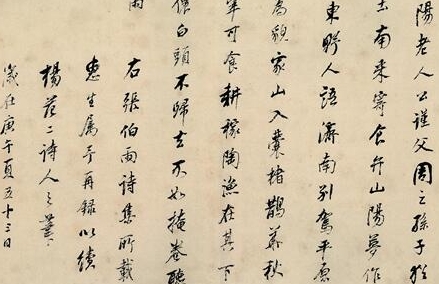 陽老人公謹父周之孫子猶
土南來寄食弁山陽夢作
東野人語濟南別駕平原
為貌家山入囊楮鵲華秋
翠可食耕稼陶漁在其下
儂白頭不歸去不如掩卷聽
雨
右張伯雨詩集所載
惠生屬予再録以續
楊范二詩人之筆
歲在庚午夏五十三日